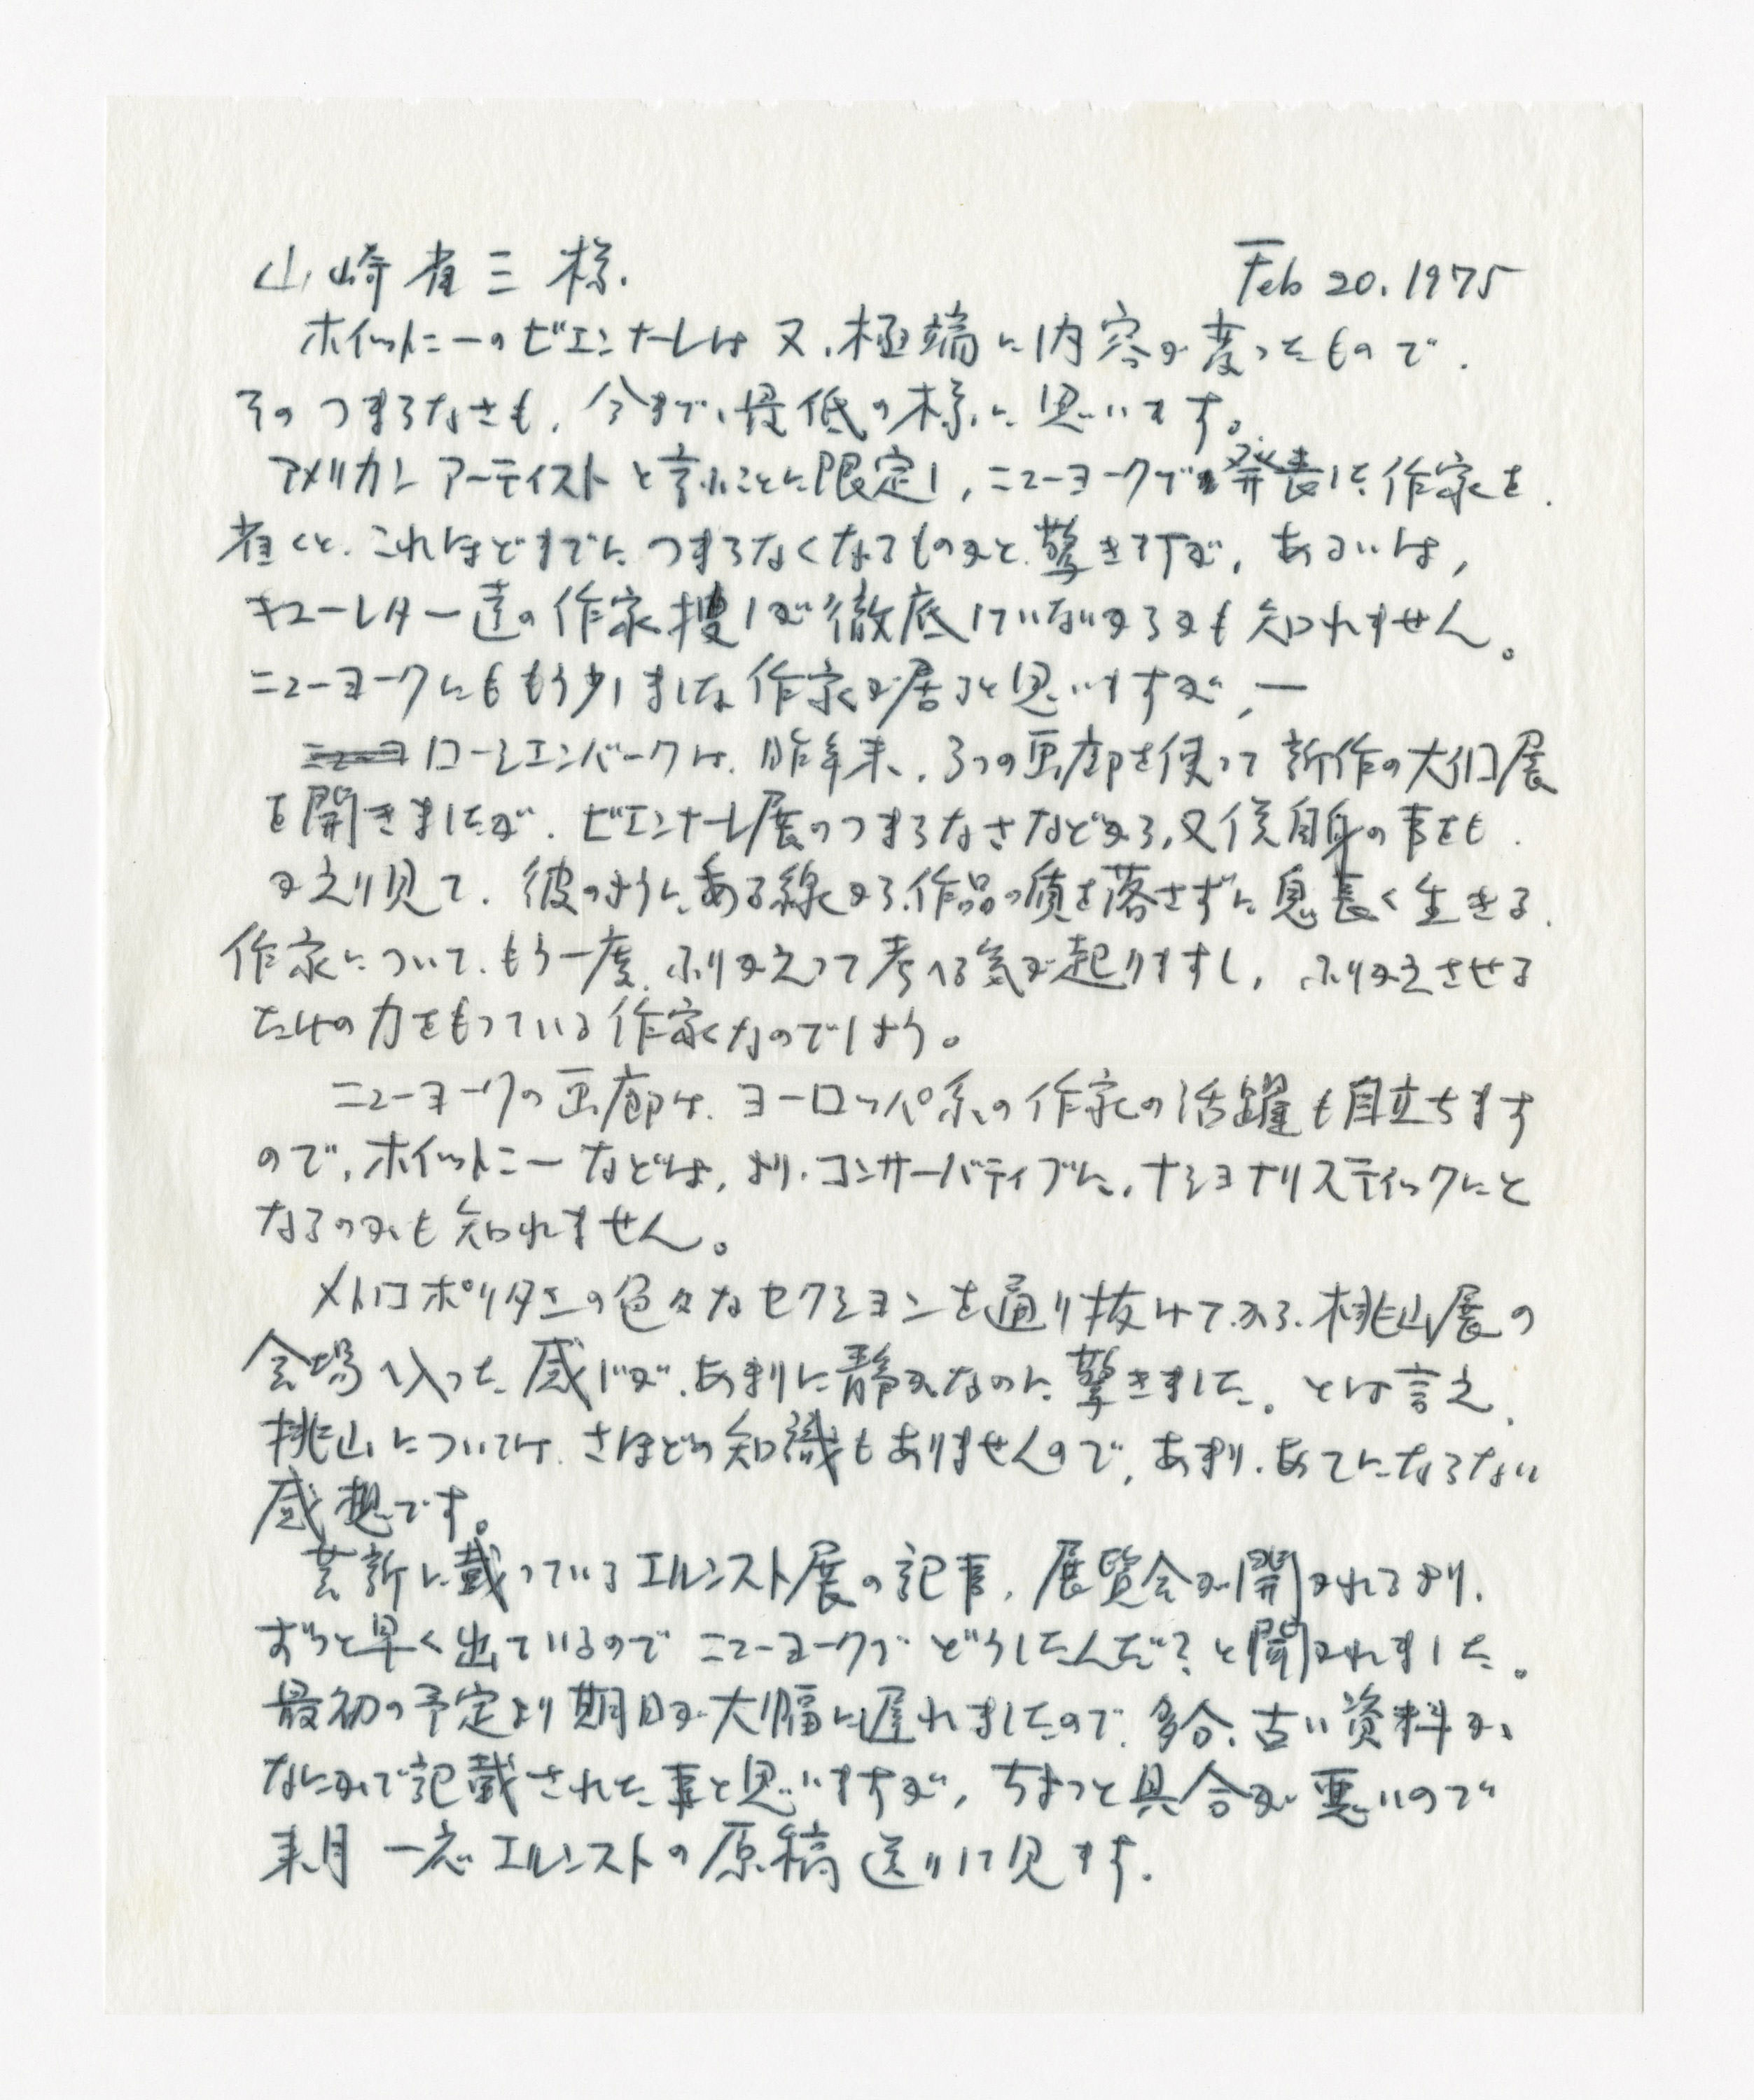 山崎省三様.
Feb 20. 1975
ホイットニーのビエンナーレは又、極端に内容が変ったもので、
そのつまらなさも、今まで、最低の様に思います。
アメリカン アーティストと言ふことに限定し、ニューヨークで発表した作家を
省くと、これほどまでに、つまらなくなるものかと、驚きですが、あるいは、
キューレター達の作家捜しが徹底していないからかも知れません。
ニューヨークにももう少しましな作家が居ると思いますが、ー
ローシェンバーグは、昨年末、3つの画廊を使って新作の大個展
を開きましたが、ビエンナーレ展のつまらなさなどから、又僕自身の事をも、
かえり見て、彼のように、ある線から、作品の質を落さずに息長く生きる、
作家について、もう一度、ふりかえって考へる気が起りますし、ふりかえさせる
だけの力をもっている作家なのでしょう。
ニューヨークの画廊は、ヨーロッパ系の作家の活躍も目立ちます
ので、ホイットニーなどは、より、コンサーバティブに、ナショナリスティックにと
なるのかも知れません。
メトロポリタンの色々なセクションを通り抜けてから、桃山展の
会場へ入った感じが、あまりに静かなのに驚きました。とは言え、
桃山については、さほどの知識もありませんので、あまり、あてにならない
感想です。
芸新に載っているエルンスト展の記事、展覧会が開かれるより、
ずっと早く出ているのでニューヨークでどうしたんだ?と聞かれました。
最初の予定より期日が大幅に遅れましたので、多分、古い資料か、
なにかで記載された事と思いますが、ちょっと具合が悪いので
来月 一応 エルンストの原稿送りして見ます.